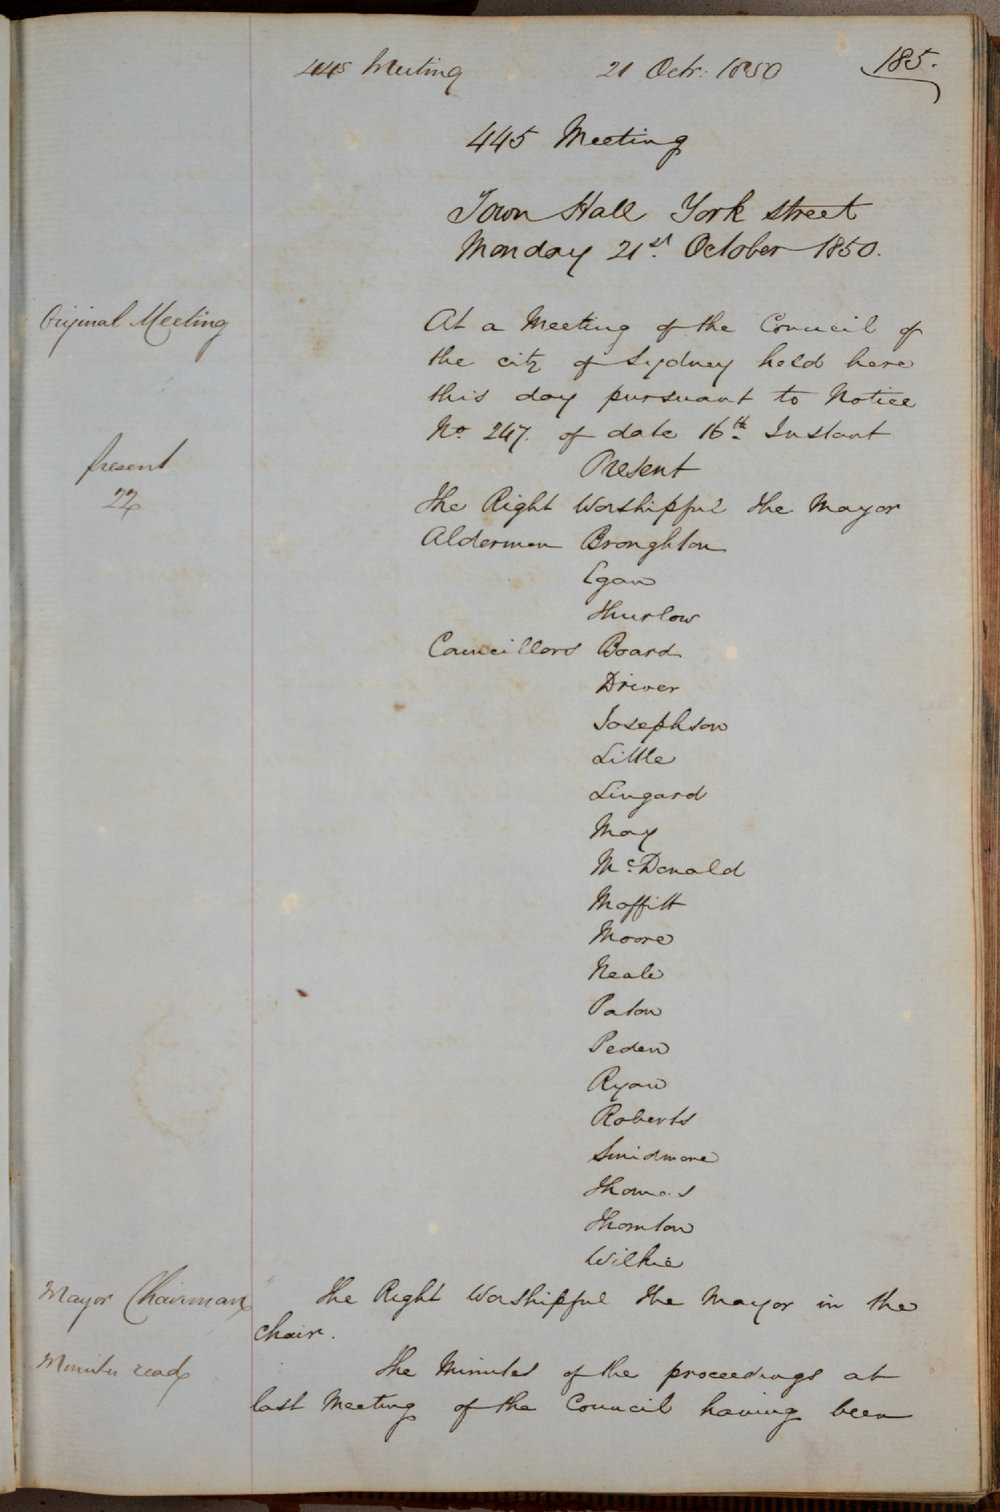 445 Meeting 21 Octr. 1850 185.
445 Meeting
Town Hall York street
Monday 21st. October 1850.
Original Meeting
At a Meeting of the Council of
the city of Sydney held here
this day pursuant to Notice
No. 247. of date 16th. Instant
Present
22
Present
The Right Worshipful the Mayor
Aldermen Broughton
Egan
Thurlow
Councillors Board
Driver
Josephson
Little
Lingard
May
McDonald
Moffitt
Moore
Neale
Paton
Peden
Ryan
Roberts
Smidmore
Thomas
Thornton
Wilkie
Mayor Chairman
The Right Worshipful the Mayor in the
chair.
Minutes read
The Minutes of the proceedings at
last Meeting of the Council having been